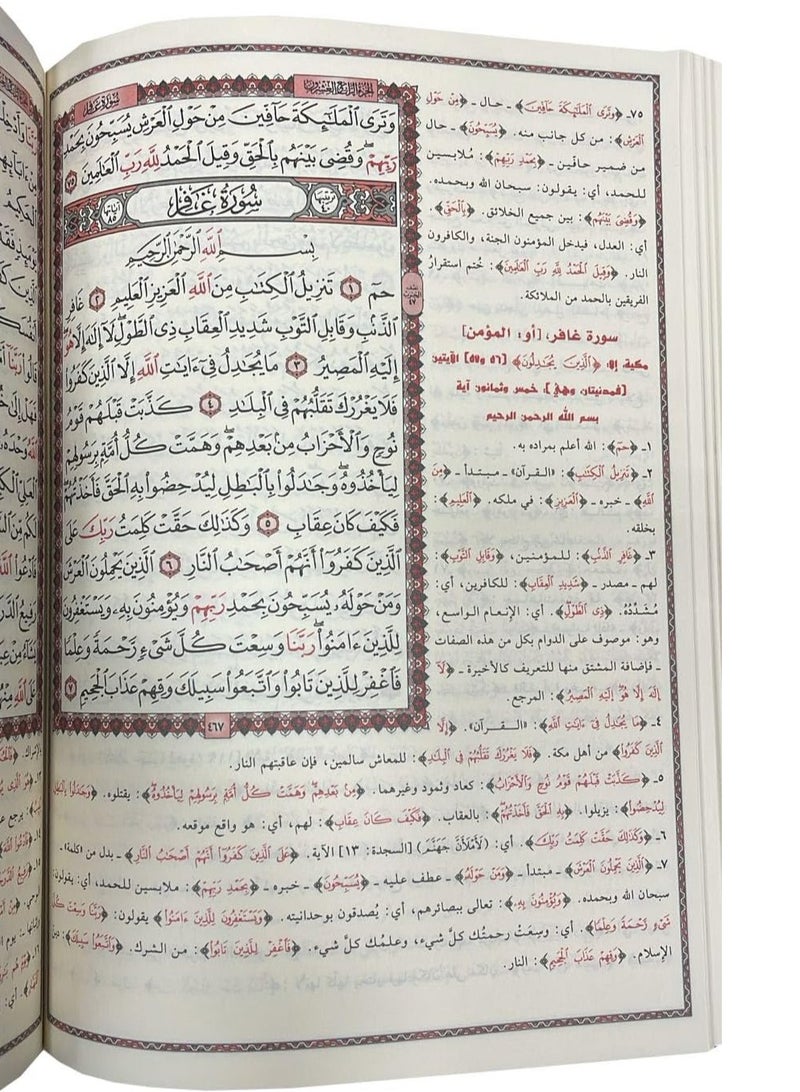 الجزء الرابع والعشرون
سورة غافر
وَتَرَى ٱلْمَلَٰٓئِكَةَ حَآفِّينَ مِنْ حَوْلِ ٱلْعَرْشِ يُسَبِّحُونَ بِحَمْدِ
رَبِّهِمْ ۖ وَقُضِىَ بَيْنَهُم بِٱلْحَقِّ وَقِيلَ ٱلْحَمْدُ لِلَّهِ رَبِّ ٱلْعَٰلَمِينَ ٧٥
ترتيبها ٤٠
سُورَةُ غَافِرٍ
آياتها ٨٥
بِسْمِ ٱللَّهِ ٱلرَّحْمَٰنِ ٱلرَّحِيمِ
حمٓ ١ تَنزِيلُ ٱلْكِتَٰبِ مِنَ ٱللَّهِ ٱلْعَزِيزِ ٱلْعَلِيمِ ٢ غَافِرِ
ٱلذَّنۢبِ وَقَابِلِ ٱلتَّوْبِ شَدِيدِ ٱلْعِقَابِ ذِى ٱلطَّوْلِ ۖ لَآ إِلَٰهَ إِلَّا هُوَ ۖ
إِلَيْهِ ٱلْمَصِيرُ ٣ مَا يُجَٰدِلُ فِىٓ ءَايَٰتِ ٱللَّهِ إِلَّا ٱلَّذِينَ كَفَرُوا۟
فَلَا يَغْرُرْكَ تَقَلُّبُهُمْ فِى ٱلْبِلَٰدِ ٤ كَذَّبَتْ قَبْلَهُمْ قَوْمُ
نُوحٍ وَٱلْأَحْزَابُ مِنۢ بَعْدِهِمْ ۖ وَهَمَّتْ كُلُّ أُمَّةٍۭ بِرَسُولِهِمْ
لِيَأْخُذُوهُ ۖ وَجَٰدَلُوا۟ بِٱلْبَٰطِلِ لِيُدْحِضُوا۟ بِهِ ٱلْحَقَّ فَأَخَذْتُهُمْ ۖ
فَكَيْفَ كَانَ عِقَابِ ٥ وَكَذَٰلِكَ حَقَّتْ كَلِمَتُ رَبِّكَ عَلَى
ٱلَّذِينَ كَفَرُوٓا۟ أَنَّهُمْ أَصْحَٰبُ ٱلنَّارِ ٦ ٱلَّذِينَ يَحْمِلُونَ ٱلْعَرْشَ
وَمَنْ حَوْلَهُۥ يُسَبِّحُونَ بِحَمْدِ رَبِّهِمْ وَيُؤْمِنُونَ بِهِۦ وَيَسْتَغْفِرُونَ
لِلَّذِينَ ءَامَنُوا۟ رَبَّنَا وَسِعْتَ كُلَّ شَىْءٍ رَّحْمَةً وَعِلْمًا
فَٱغْفِرْ لِلَّذِينَ تَابُوا۟ وَٱتَّبَعُوا۟ سَبِيلَكَ وَقِهِمْ عَذَابَ ٱلْجَحِيمِ ٧
٤٦٧
٧٥ـ ﴿وَتَرَى الْمَلَائِكَةَ حَافِّينَ﴾ ـ حال ـ ﴿مِنْ حَوْلِ
الْعَرْشِ﴾: من كل جانب منه. ﴿يُسَبِّحُونَ﴾ ـ حال
من ضمير حافين ـ ﴿بِحَمْدِ رَبِّهِمْ﴾: مُلابسين
للحمد، أي: يقولون: سبحان الله وبحمده.
﴿وَقُضِيَ بَيْنَهُم﴾: بين جميع الخلائق. ﴿بِالْحَقِّ﴾
أي: العدل، فيدخل المؤمنون الجنة، والكافرون
النار. ﴿وَقِيلَ الْحَمْدُ لِلَّهِ رَبِّ الْعَالَمِينَ﴾: خُتم استقرار
الفريقين بالحمد من الملائكة.
سورة غافر، [أو: المؤمن]
مكية، إلا: ﴿الَّذِينَ يُجَادِلُونَ﴾ [٥٦ و٥٧] الآيتين
[فمدنيتان، وهي]: خمس وثمانون آية
بسم الله الرحمن الرحيم
١ـ ﴿حم﴾: الله أعلم بمراده به.
٢ـ ﴿تَنزِيلُ الْكِتَابِ﴾: «القرآن» ـ مبتدأ ـ ﴿مِنَ
اللَّهِ﴾ ـ خبره ـ ﴿الْعَزِيزِ﴾: في ملكه. ﴿الْعَلِيمِ﴾:
بخلقه.
٣ـ ﴿غَافِرِ الذَّنبِ﴾: للمؤمنين، ﴿وَقَابِلِ التَّوْبِ﴾:
لهم ـ مصدر ـ ﴿شَدِيدِ الْعِقَابِ﴾: للكافرين، أي:
مُشَدِّدُهُ. ﴿ذِي الطَّوْلِ﴾. أي: الإنعام الواسع،
وهو: موصوف على الدوام بكل من هذه الصفات
ـ فإضافة المشتق منها للتعريف كالأخيرة ـ ﴿لَا
إِلَٰهَ إِلَّا هُوَ إِلَيْهِ الْمَصِيرُ﴾: المرجع.
٤ـ ﴿مَا يُجَادِلُ فِي آيَاتِ اللَّهِ﴾: «القرآن». ﴿إِلَّا
الَّذِينَ كَفَرُوا﴾ من أهل مكة. ﴿فَلَا يَغْرُرْكَ تَقَلُّبُهُمْ فِي الْبِلَادِ﴾: للمعاش سالمين، فإن عاقبتهم النار.
٥ـ ﴿كَذَّبَتْ قَبْلَهُمْ قَوْمُ نُوحٍ وَالْأَحْزَابُ﴾: كعاد وثمود وغيرهما. ﴿مِنْ بَعْدِهِمْ وَهَمَّتْ كُلُّ أُمَّةٍ بِرَسُولِهِمْ لِيَأْخُذُوهُ﴾: يقتلوه. ﴿وَجَادَلُوا بِالْبَاطِلِ
لِيُدْحِضُوا﴾: يزيلوا. ﴿بِهِ الْحَقَّ فَأَخَذْتُهُمْ﴾: بالعقاب. ﴿فَكَيْفَ كَانَ عِقَابِ﴾: لهم، أي: هو واقع موقعه.
٦ـ ﴿وَكَذَٰلِكَ حَقَّتْ كَلِمَتُ رَبِّكَ﴾. أي: ﴿لَأَمْلَأَنَّ جَهَنَّمَ﴾ [السجدة: ١٣] الآية. ﴿عَلَى الَّذِينَ كَفَرُوا أَنَّهُمْ أَصْحَابُ النَّارِ﴾ ـ بدل من «كلمة» ـ
٧ـ ﴿الَّذِينَ يَحْمِلُونَ الْعَرْشَ﴾ ـ مبتدأ ـ ﴿وَمَنْ حَوْلَهُ﴾ ـ عطف عليه ـ ﴿يُسَبِّحُونَ﴾ ـ خبره ـ ﴿بِحَمْدِ رَبِّهِمْ﴾: ملابسين للحمد، أي: يقولون:
سبحان الله وبحمده. ﴿وَيُؤْمِنُونَ بِهِ﴾: تعالى ببصائرهم، أي: يُصدقون بوحدانيته. ﴿وَيَسْتَغْفِرُونَ لِلَّذِينَ آمَنُوا﴾ يقولون: ﴿رَبَّنَا وَسِعْتَ كُلَّ
شَيْءٍ رَحْمَةً وَعِلْمًا﴾. أي: وسِعَتْ رحمتُك كلَّ شيء، وعلمُك كلَّ شيء. ﴿فَاغْفِرْ لِلَّذِينَ تَابُوا﴾: من الشرك. ﴿وَاتَّبَعُوا سَبِيلَكَ﴾: دين
الإسلام. ﴿وَقِهِمْ عَذَابَ الْجَحِيمِ﴾: النار.